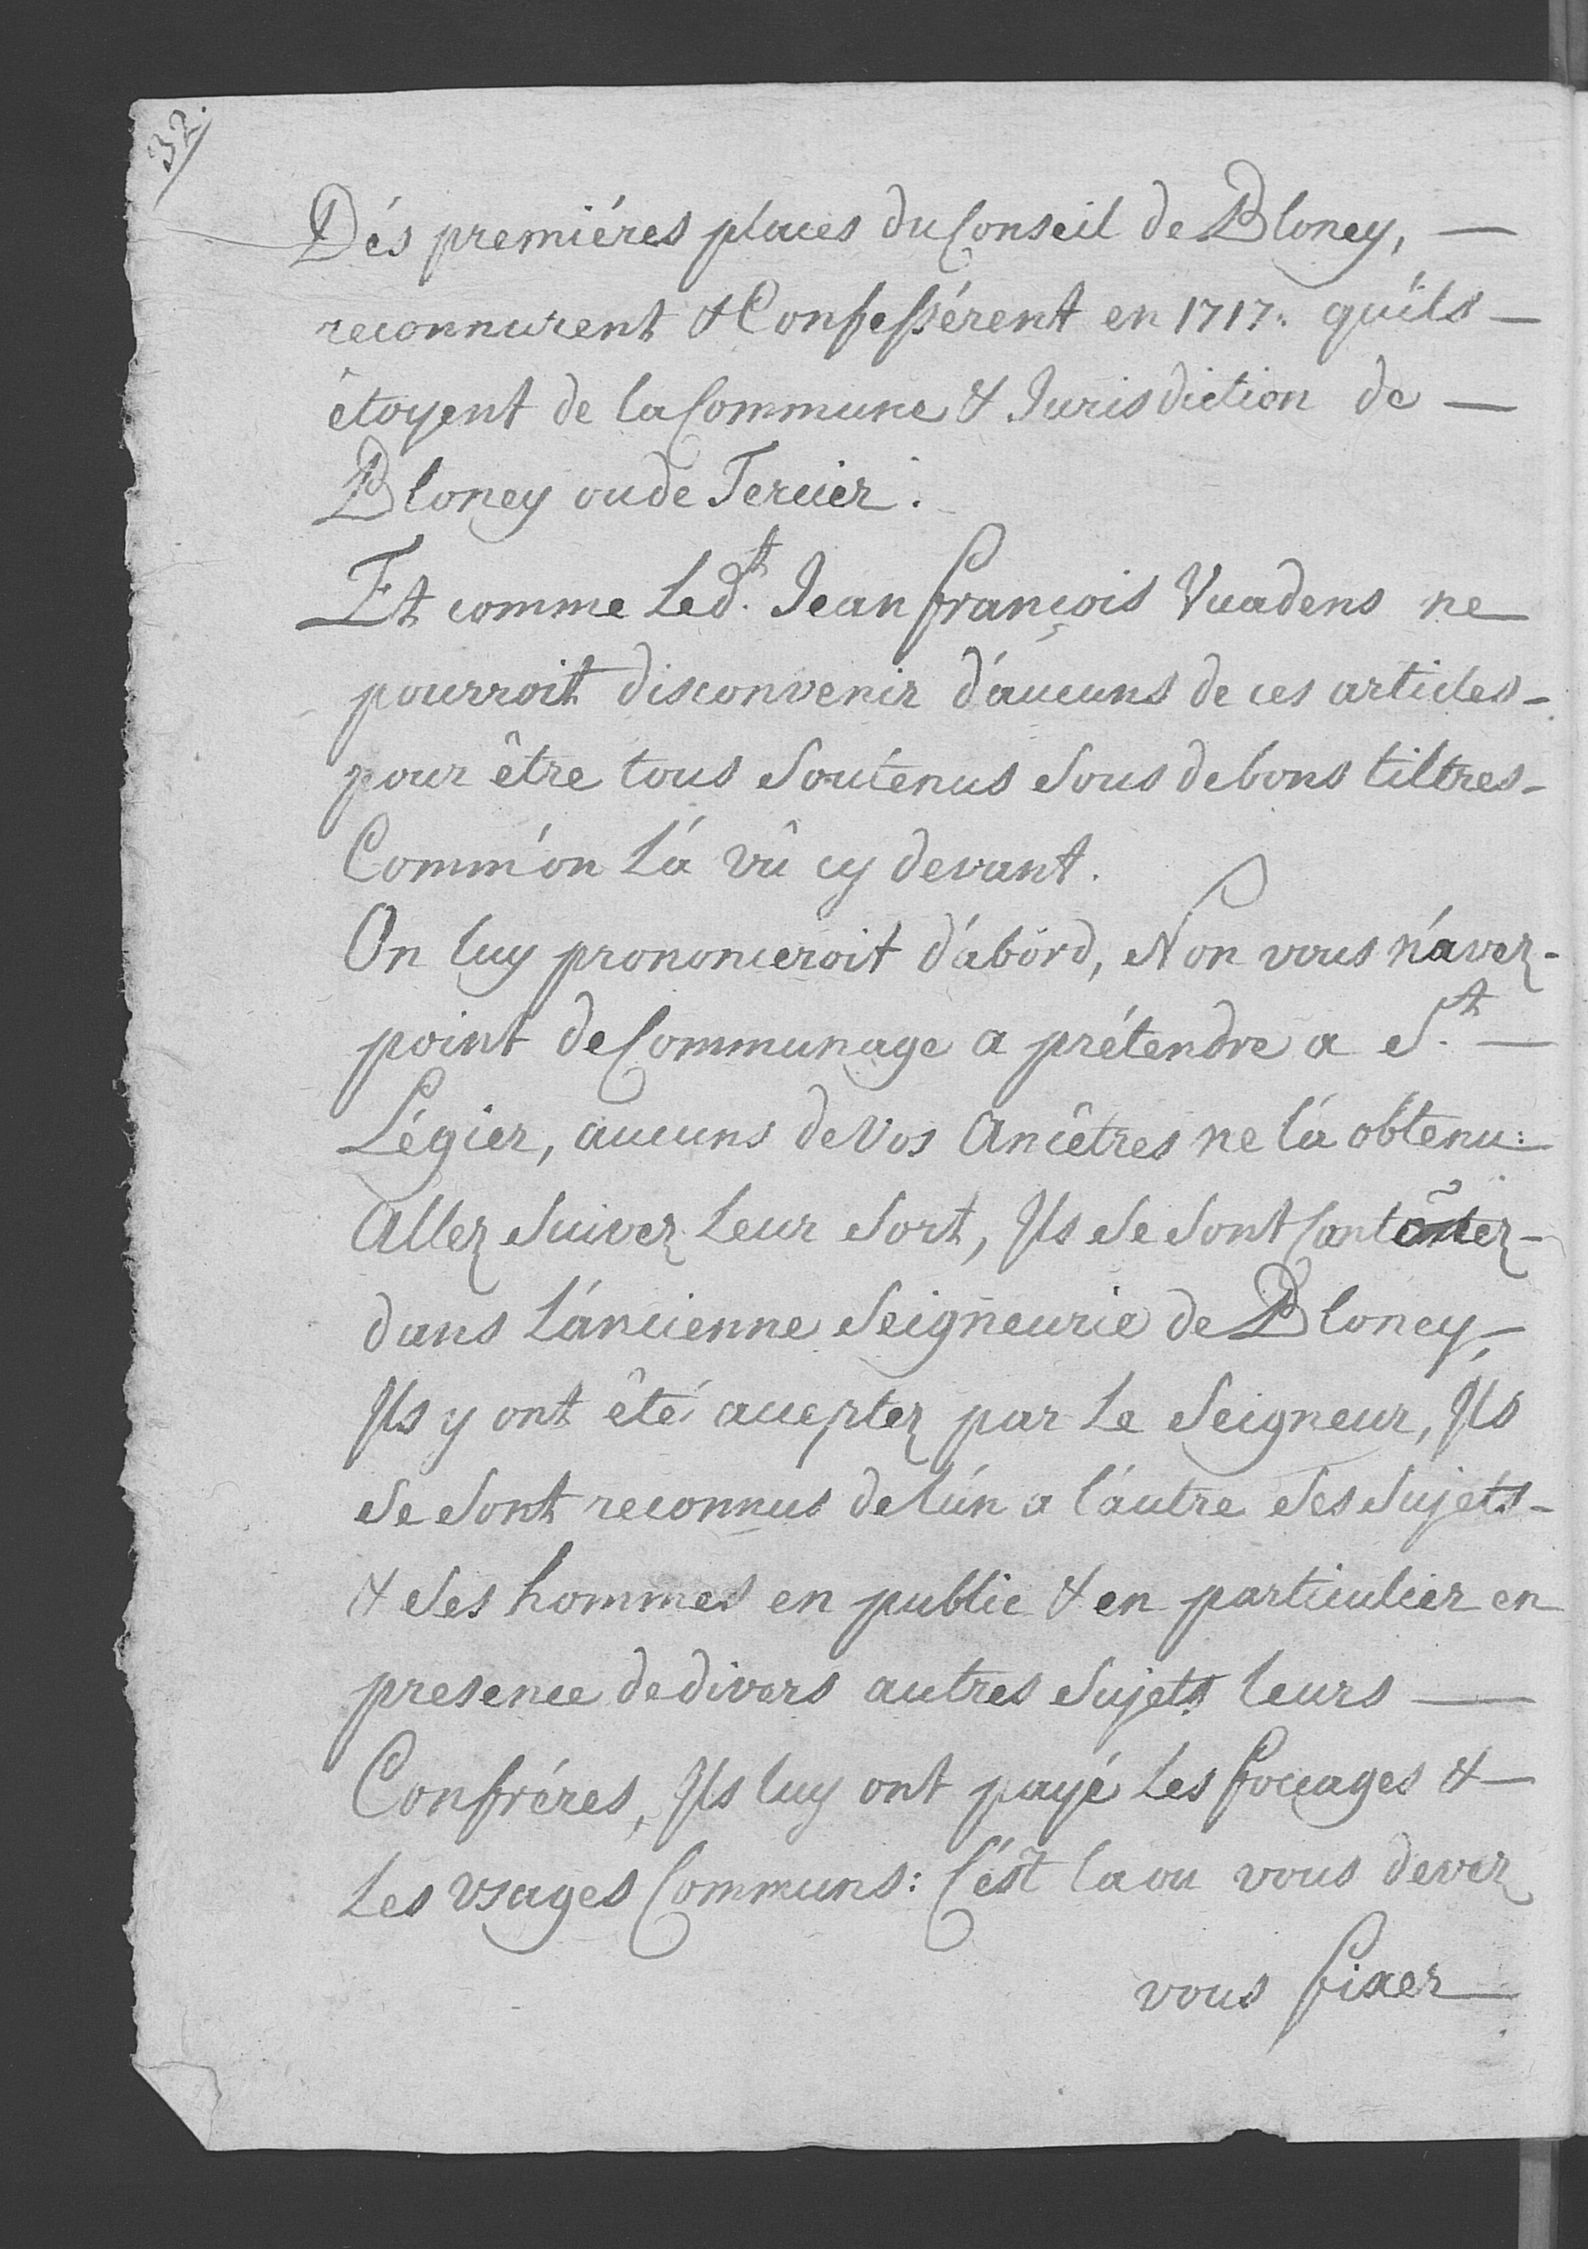 32.
Dés premiéres places du Conseil de Bloney, —
reconnurent & Confessérent en 1717. qu'ils —
êtoyent de la Commune & Jurisdiction de —
Bloney ou de Tercier.
Et comme Led.t Jean françois Vuadens ne
pourroit disconvenir d'aucuns de ces articles -
pour être tous Soutenus Sous de bons tiltres -
Comm'on L'a vû cy devant.
On luy prononceroit d'abord, Non vous n'avez -
point de Communage a prétendre a S.t —
Légier, aucuns de Vos Ancêtres ne l'a obtenu:
Allez Suivez Leur Sort, Ils Se Sont Contentez -
dans L'ancienne Seigneurie de Bloney, -
Ils y ont êté acceptez par Le Seigneur, Ils
Se Sont reconnus de l'un a l'autre Ses Sujets -
& Ses hommes en public & en particulier en
presence de divers autres Sujets leurs —
Confréres, Ils luy ont payé Les foüages & —
Les Vsages Communs: C'est la ou vous devez
vous fixer —